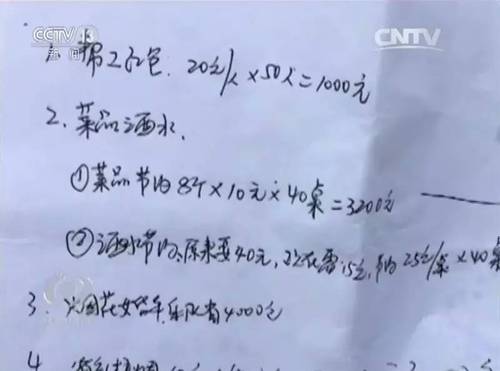 CCTV 13
新闻
CNTV
1. 帮工红包: 20元/人×50人=1000元
2. 菜品酒水.
①菜品节约8个×10元×40桌=3200元
②酒水节约:原来要40元,现在需15元,节约25元/桌×40桌
3. 花 乐队省4000元
4.